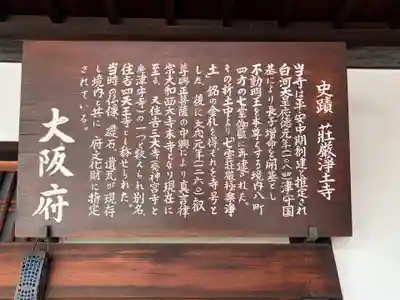 史蹟 荘厳浄土寺
当寺は平安中期創建と推定され
白河天皇応徳元年(一〇八四)津守国
基により長子増命を開基とし
不動明王を本尊とする境内八町
四方の七堂が再建された。
その折土中より「七宝荘厳極楽浄
土」銘の金札を得、それを寺号と
した。後に文応元年(一二六〇)叡
尊興正菩薩の中興により真言律
宗大和西大寺末寺となり現在に
至る。又住吉三大寺(神宮寺と
津守寺)の一つと数えられ別名、
住吉四天王寺とも称せられた。
当時の仏像、礎石、遺瓦が現存
し境内と共に、府文化財に指定
されている。
大阪府